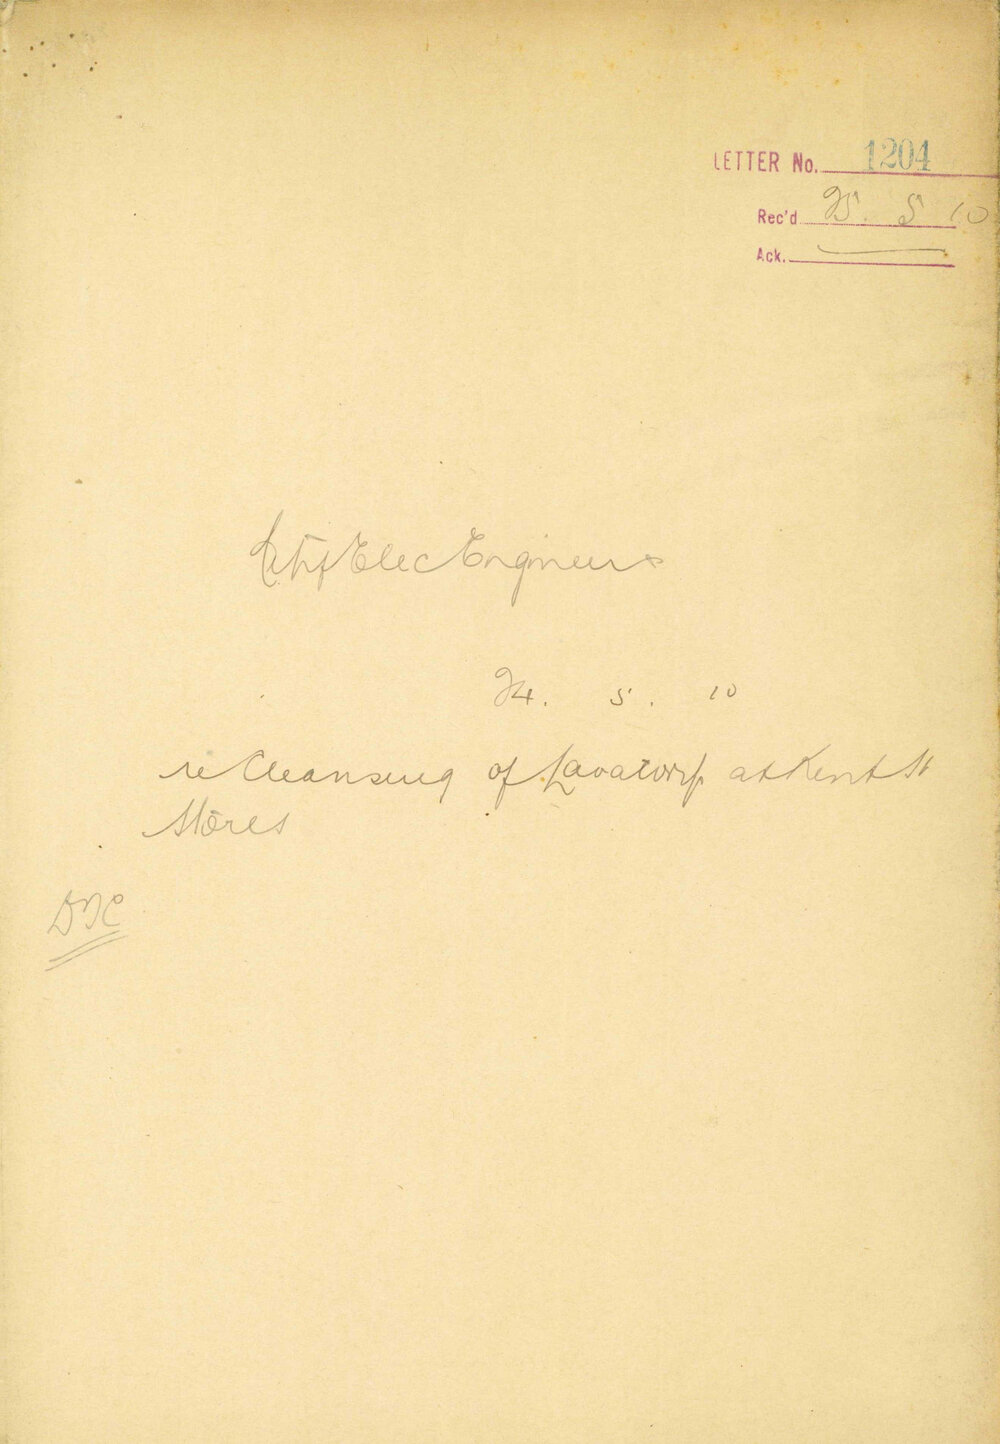 LETTER No. 1204
Rec'd 25. 5 10
Ack.
Elec Engineers
24. 5. 10
re Cleansing of Lavatory at Kent St
Stores